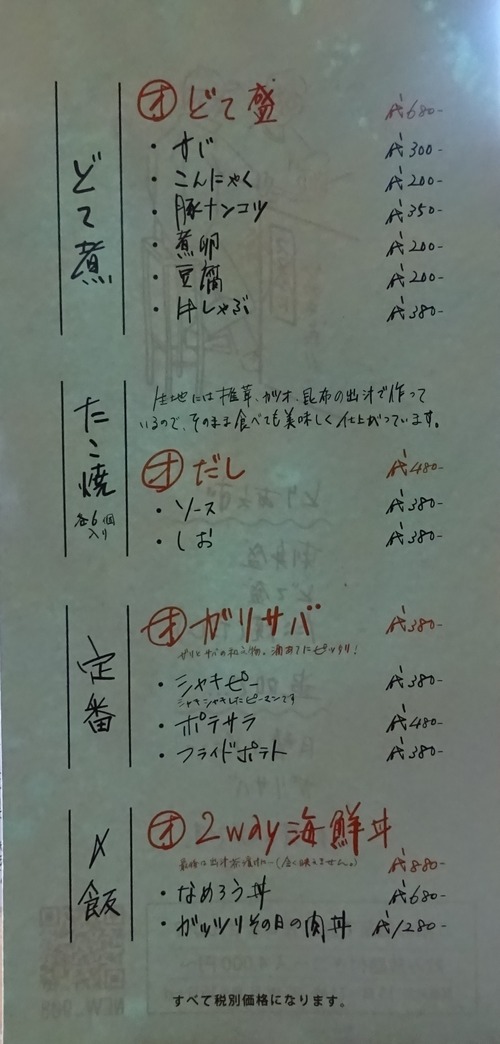 どて煮
オ どて盛 代680-
・すじ 代300-
・こんにゃく 代200-
・豚ナンコツ 代350-
・煮卵 代200-
・豆腐 代200-
・牛しゃぶ 代380-
たこ焼
各6個
入り
生地には椎茸、カツオ、昆布の出汁で作って
いるので、そのまま食べても美味しく仕上がっています。
オ だし 代480-
・ソース 代380-
・しお 代380-
定番
オ ガリサバ 代380-
ガリとサバの和え物。酒のアテにピッタリ!
・シャキピー 代380-
シャキシャキしたピーマンです
・ポテサラ 代480-
・フライドポテト 代380-
〆飯
オ 2way海鮮丼
最後は出汁茶漬けに(全く映えません。) 代880-
・なめろう丼 代680-
・ガッツリその日の肉丼 代1280-
すべて税別価格になります。